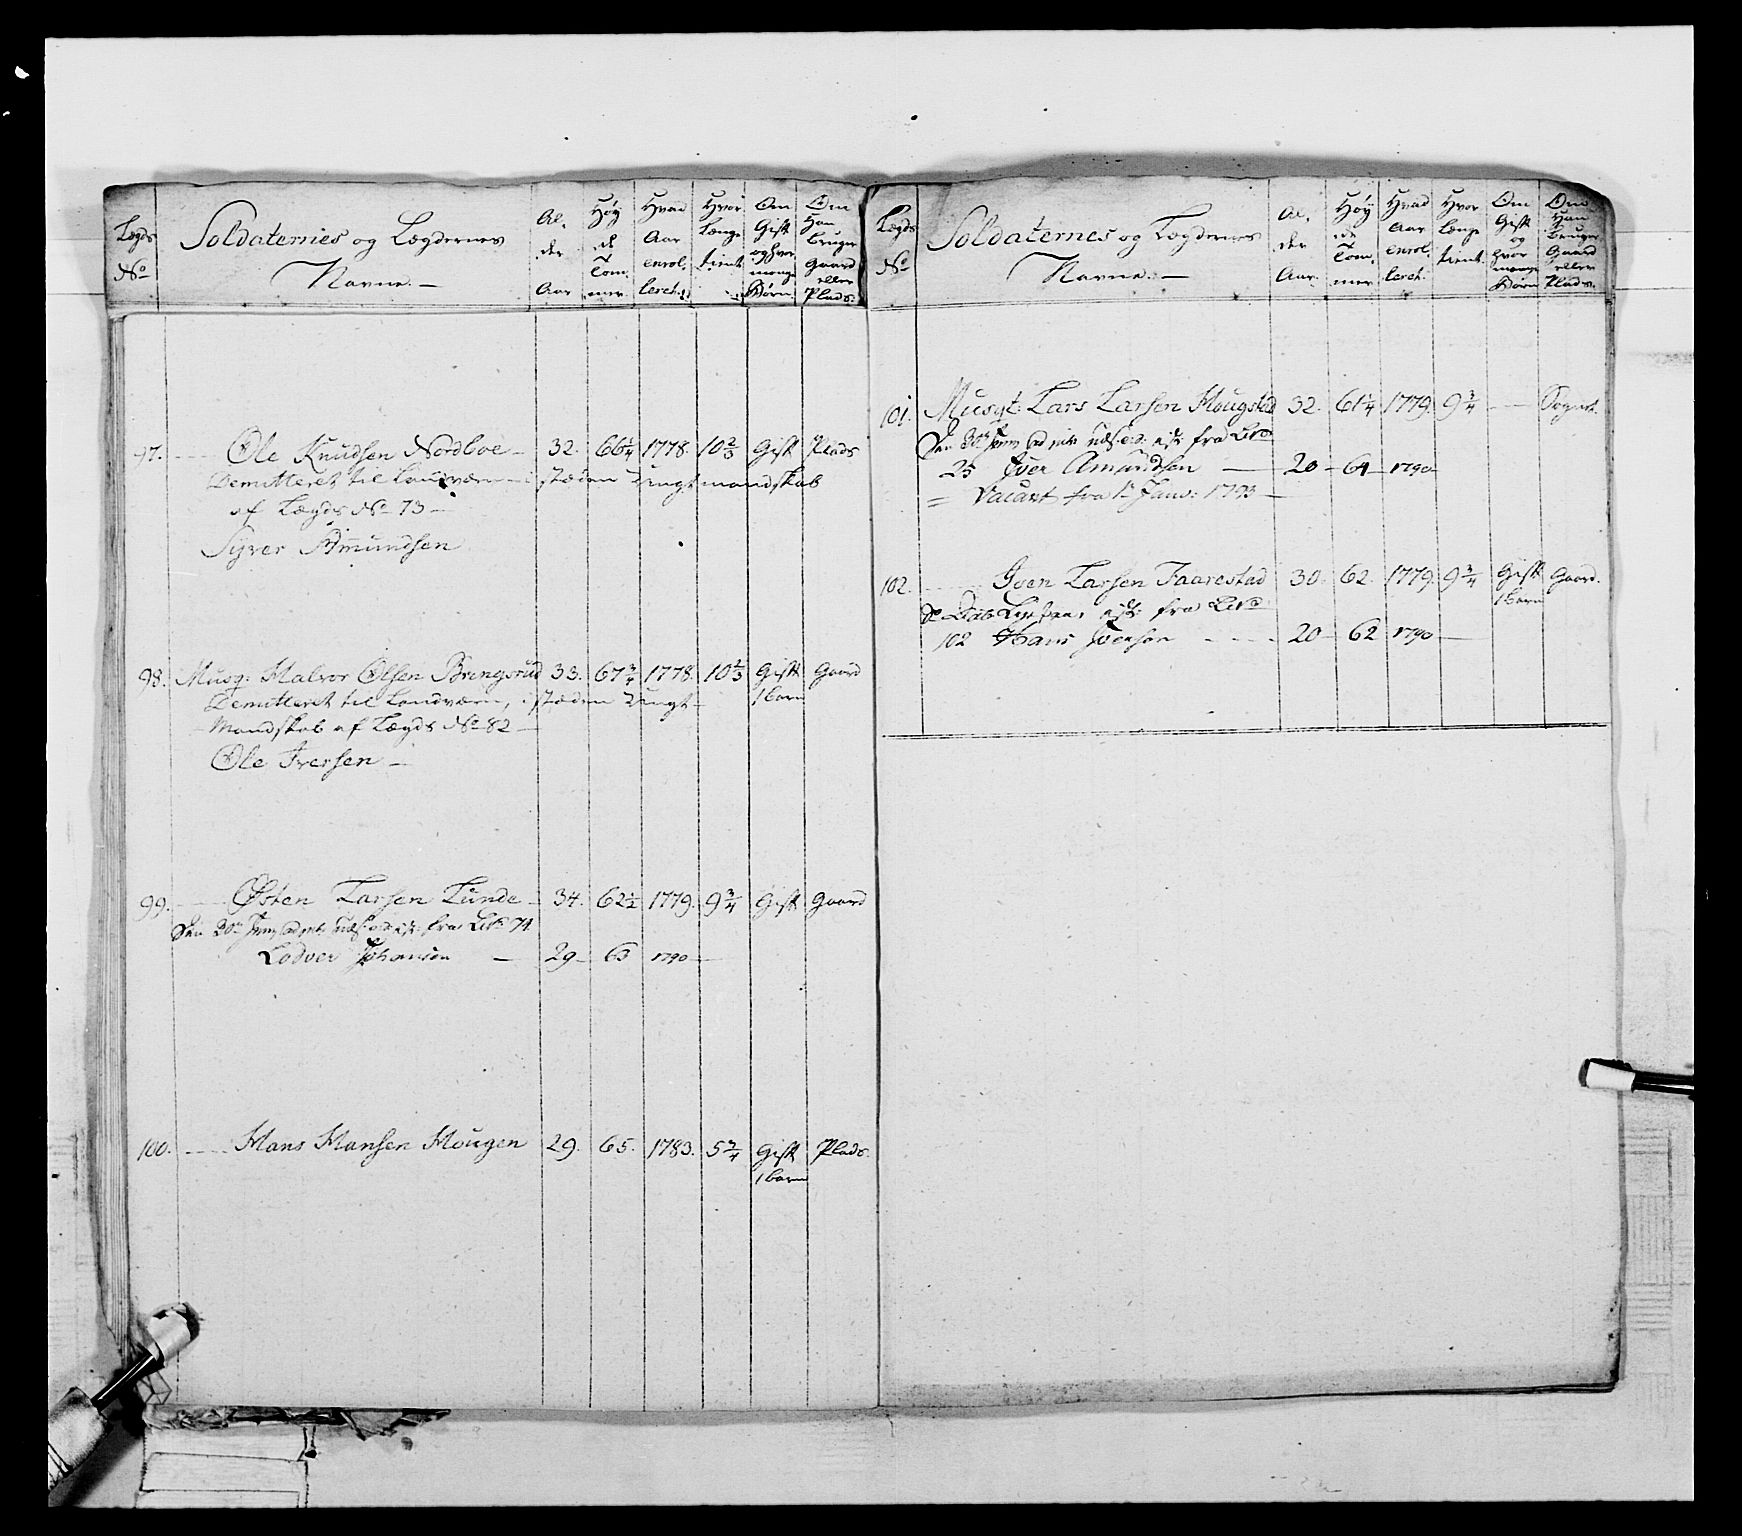 Lægds No
Soldaternes og Lægdernes Navne.
Al. der Aar
Høy de Tom. mer
Hvad Aar enrol. leret.
Hvor længe tient
Om Gift og hvor mange Børn
Om Han bruger Gaard eller Plads.
97. Ole Knudsen Nordboe 32. 66 1/4 1778. 10 2/3 Gift Plads
Demitteret til Landværn i stæden Ungt mandskab
af Lægds No 73
Syver Amundsen
98. Musq: Halvor Olsen Brengsrud 33. 67 3/4 1778. 10 2/3 Gift Gaard
1 barn
Demitteret til Landværn, i stæden Ungt
Mandskab af Lægds No 82
Ole Iversen
99. Østen Larsen Lunde 34. 62 1/2 1779. 9 3/4 Gift Gaard
fra 74
Lodver Johansen 29 63 1790
100. Hans Hansen Hougen 29. 65. 1783. 5 3/4 Gift Plads.
1 barn
Lægds No
Soldaternes og Lægdernes Navne.
Al. der Aar.
Høy de Tom. mer
Hvad Aar enrol. leret.
Hvor længe tient.
Om Gift og hvor mange Børn
Om Han bruger Gaard eller Plads.
101. Musqt: Lars Larsen Hougstad 32. 61 1/4 1779. 9 3/4
fra
25 Iver Amundsen 20 64 1790
Vacant fra 1. Janv: 1793
102. Iven Larsen Faarestad 30. 62. 1779. 9 3/4 Gift Gaard.
1 barn
fra
102 Hans Ivensen 20 62 1790